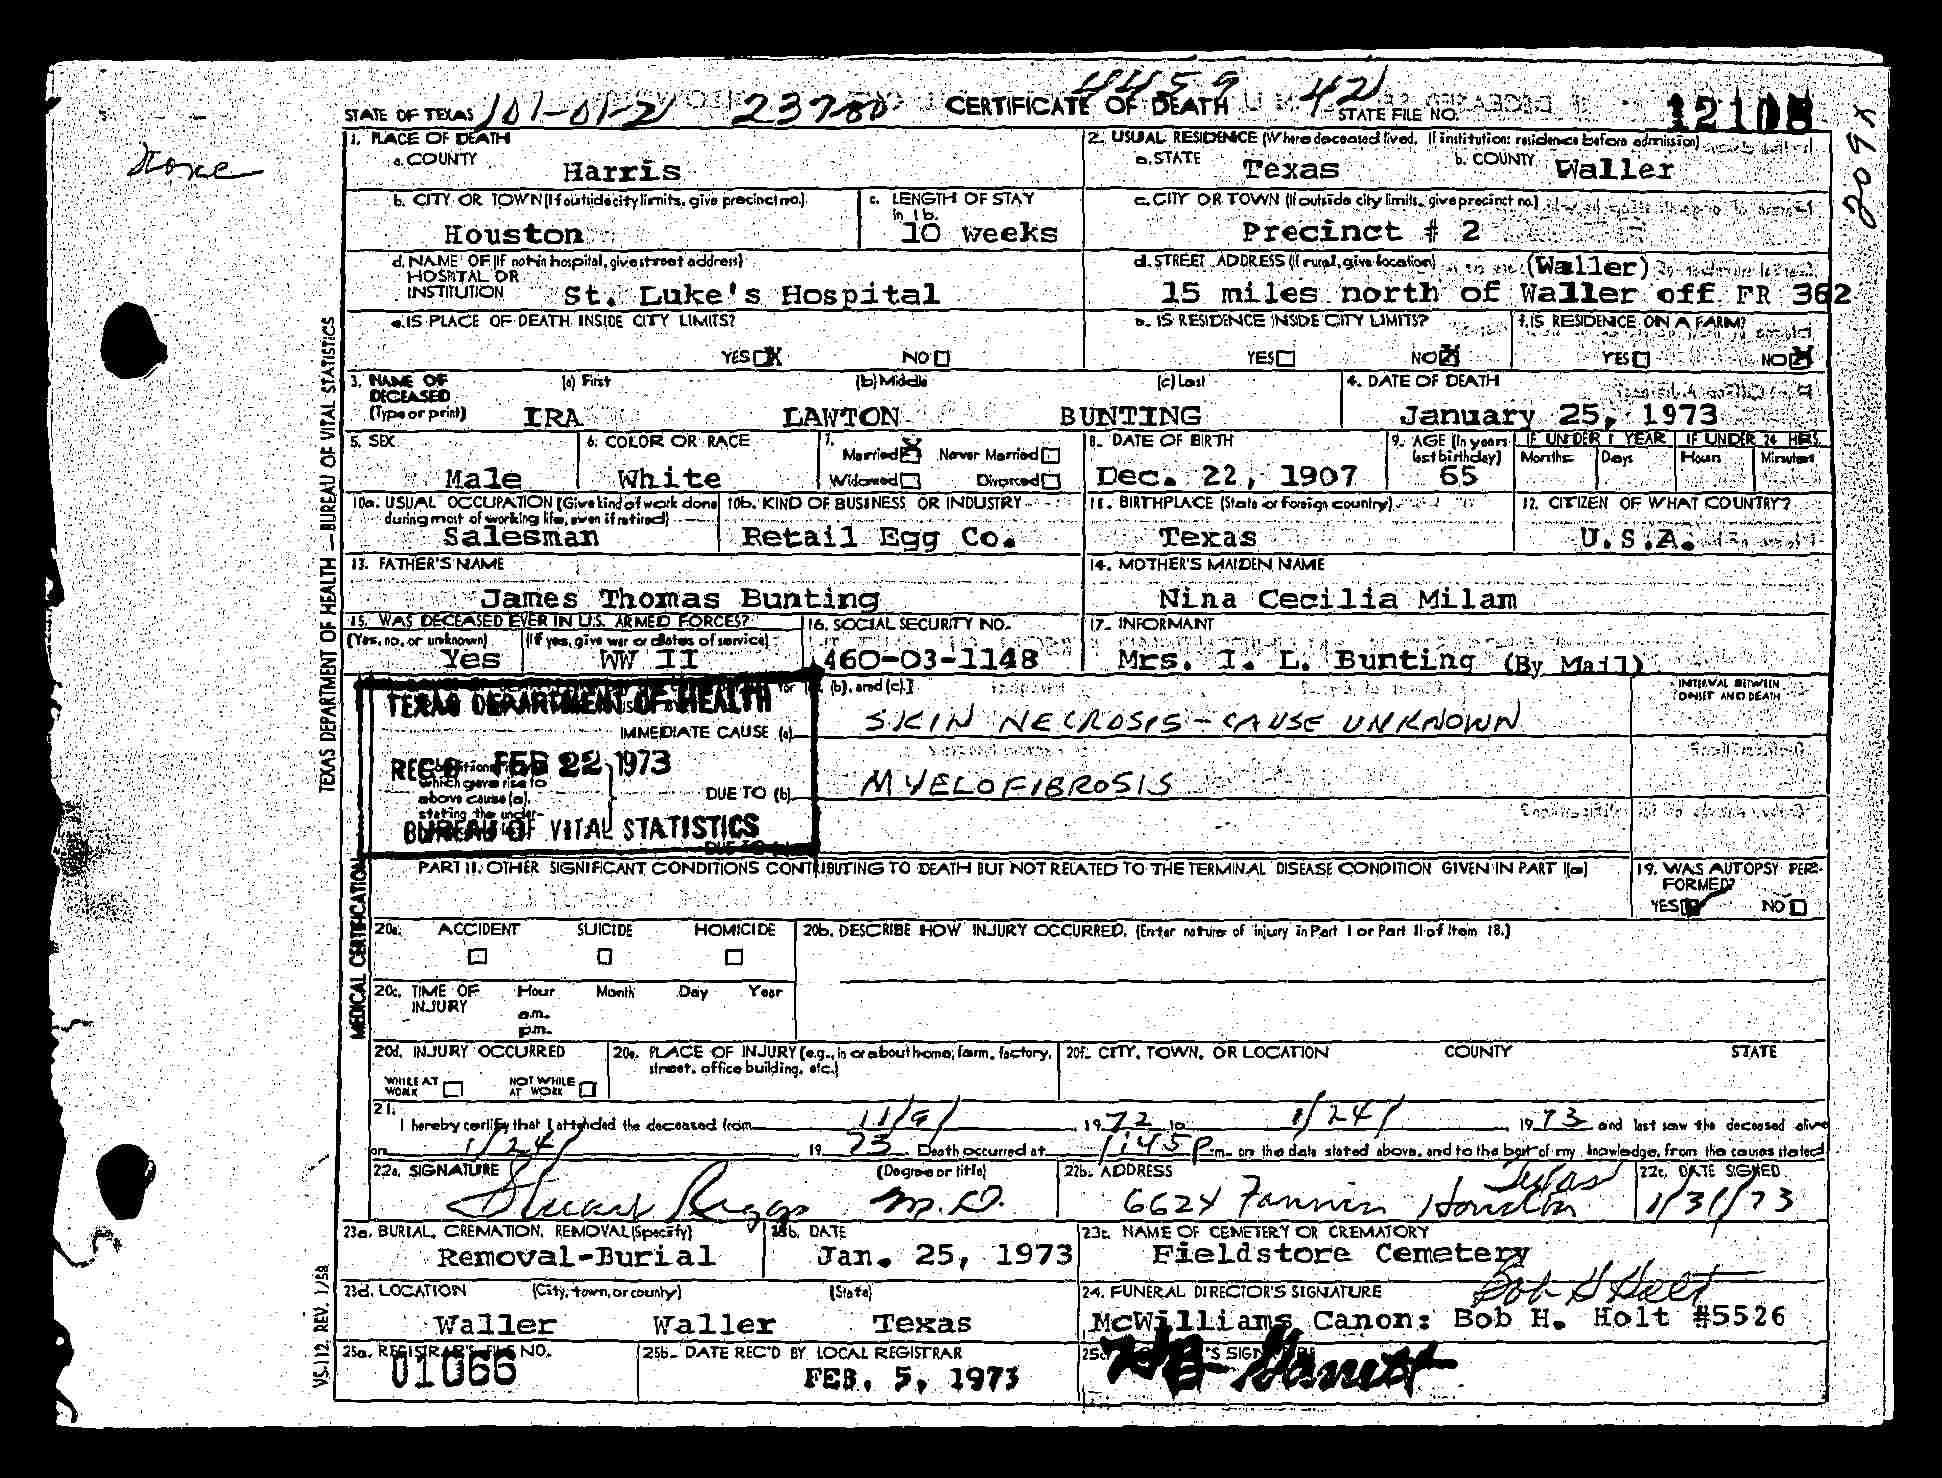 4459 421
STATE OF TEXAS 101-01-2 23780 CERTIFICATE OF DEATH STATE FILE NO. 12108
2098
None
1. PLACE OF DEATH
a. COUNTY Harris
2. USUAL RESIDENCE (Where deceased lived. If institution: residence before admission)
a. STATE Texas b. COUNTY Waller
b. CITY OR TOWN (If outside city limits, give precinct no.) Houston
c. LENGTH OF STAY in 1b. 10 weeks
c. CITY OR TOWN (If outside city limits, give precinct no.) Precinct # 2
d. NAME OF (If not in hospital, give street address) HOSPITAL OR INSTITUTION St. Luke's Hospital
d. STREET ADDRESS (If rural, give location) (Waller)
15 miles north of Waller off FR 362
e. IS PLACE OF DEATH INSIDE CITY LIMITS?
YES X NO
e. IS RESIDENCE INSIDE CITY LIMITS?
YES NO X
f. IS RESIDENCE ON A FARM?
YES NO X
3. NAME OF DECEASED (Type or print) (a) First IRA (b) Middle LAWTON (c) Last BUNTING
4. DATE OF DEATH January 25, 1973
5. SEX Male
6. COLOR OR RACE White
7. Married X Never Married
Widowed Divorced
8. DATE OF BIRTH Dec. 22, 1907
9. AGE (In years last birthday) 65
IF UNDER 1 YEAR Months Days
IF UNDER 24 HRS. Hours Minutes
10a. USUAL OCCUPATION (Give kind of work done during most of working life, even if retired) Salesman
10b. KIND OF BUSINESS OR INDUSTRY Retail Egg Co.
11. BIRTHPLACE (State or foreign country) Texas
12. CITIZEN OF WHAT COUNTRY? U.S.A.
13. FATHER'S NAME James Thomas Bunting
14. MOTHER'S MAIDEN NAME Nina Cecilia Milam
15. WAS DECEASED EVER IN U.S. ARMED FORCES?
(Yes, no, or unknown) Yes (If yes, give war or dates of service) WW II
16. SOCIAL SECURITY NO. 460-03-1148
17. INFORMANT Mrs. I. L. Bunting (By Mail)
TEXAS DEPARTMENT OF HEALTH
REC'D FEB 22 1973
BUREAU OF VITAL STATISTICS
for (b), and (c).]
INTERVAL BETWEEN ONSET AND DEATH
IMMEDIATE CAUSE (a) SKIN NECROSIS - CAUSE UNKNOWN
which gave rise to above cause (a), stating the under-
DUE TO (b) MYELOFIBROSIS
DUE TO
PART II. OTHER SIGNIFICANT CONDITIONS CONTRIBUTING TO DEATH BUT NOT RELATED TO THE TERMINAL DISEASE CONDITION GIVEN IN PART I(a)
19. WAS AUTOPSY PERFORMED?
YES NO
20a. ACCIDENT SUICIDE HOMICIDE
20b. DESCRIBE HOW INJURY OCCURRED. (Enter nature of injury in Part I or Part II of Item 18.)
20c. TIME OF INJURY Hour Month Day Year
a.m.
p.m.
20d. INJURY OCCURRED
WHILE AT WORK NOT WHILE AT WORK
20e. PLACE OF INJURY (e.g., in or about home, farm, factory, street, office building, etc.)
20f. CITY, TOWN, OR LOCATION COUNTY STATE
21. I hereby certify that I attended the deceased from 11/9/ 1972 to 1/24/ 1973 and last saw the deceased alive
on 1/24/ 1973. Death occurred at 1:45 P.m. on the date stated above, and to the best of my knowledge, from the causes stated
22a. SIGNATURE (Degree or title) Stuart Riggs M.D.
22b. ADDRESS 6624 Fannin Houston Texas
22c. DATE SIGNED 1/31/73
23a. BURIAL, CREMATION, REMOVAL (Specify) Removal-Burial
23b. DATE Jan. 25, 1973
23c. NAME OF CEMETERY OR CREMATORY Fieldstore Cemetery
23d. LOCATION (City, town, or county) (State)
Waller Waller Texas
24. FUNERAL DIRECTOR'S SIGNATURE Bob H Holt
McWilliams Canon: Bob H. Holt #5526
25a. REGISTRAR'S FILE NO. 01066
25b. DATE REC'D BY LOCAL REGISTRAR FEB. 5, 1973
TEXAS DEPARTMENT OF HEALTH — BUREAU OF VITAL STATISTICS
MEDICAL CERTIFICATION
VS-112. REV. 1/58